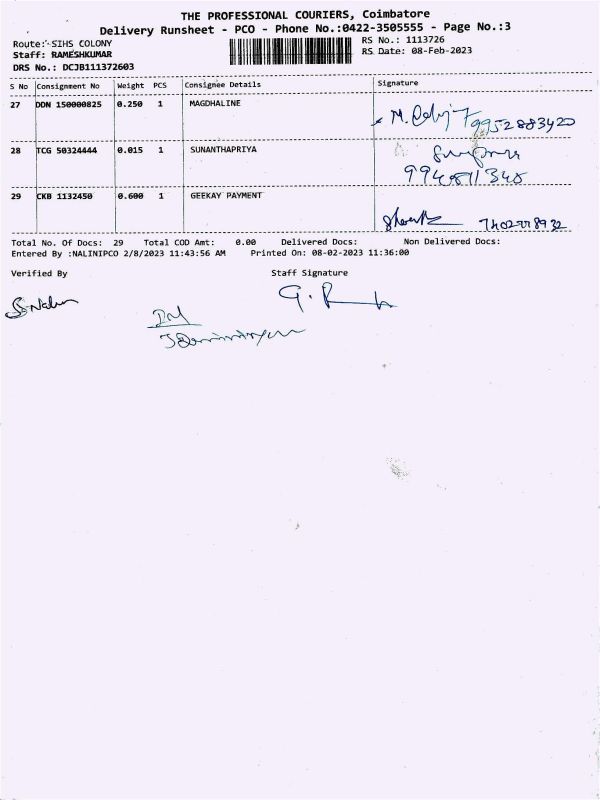 THE PROFESSIONAL COURIERS, Coimbatore
Delivery Runsheet - PCO - Phone No.:0422-3505555 - Page No.:3
Route: SIHS COLONY
Staff: RAMESHKUMAR
DRS No.: DCJB111372603
RS No.: 1113726
RS Date: 08-Feb-2023
S No Consignment No Weight PCS Consignee Details Signature
27 DDN 150000825 0.250 1 MAGDHALINE
9952883420
28 TCG 50324444 0.015 1 SUNANTHAPRIYA
29 CKB 1132450 0.600 1 GEEKAY PAYMENT
Total No. Of Docs: 29 Total COD Amt: 0.00 Delivered Docs: Non Delivered Docs:
Entered By :NALINIPCO 2/8/2023 11:43:56 AM Printed On: 08-02-2023 11:36:00
Verified By Staff Signature